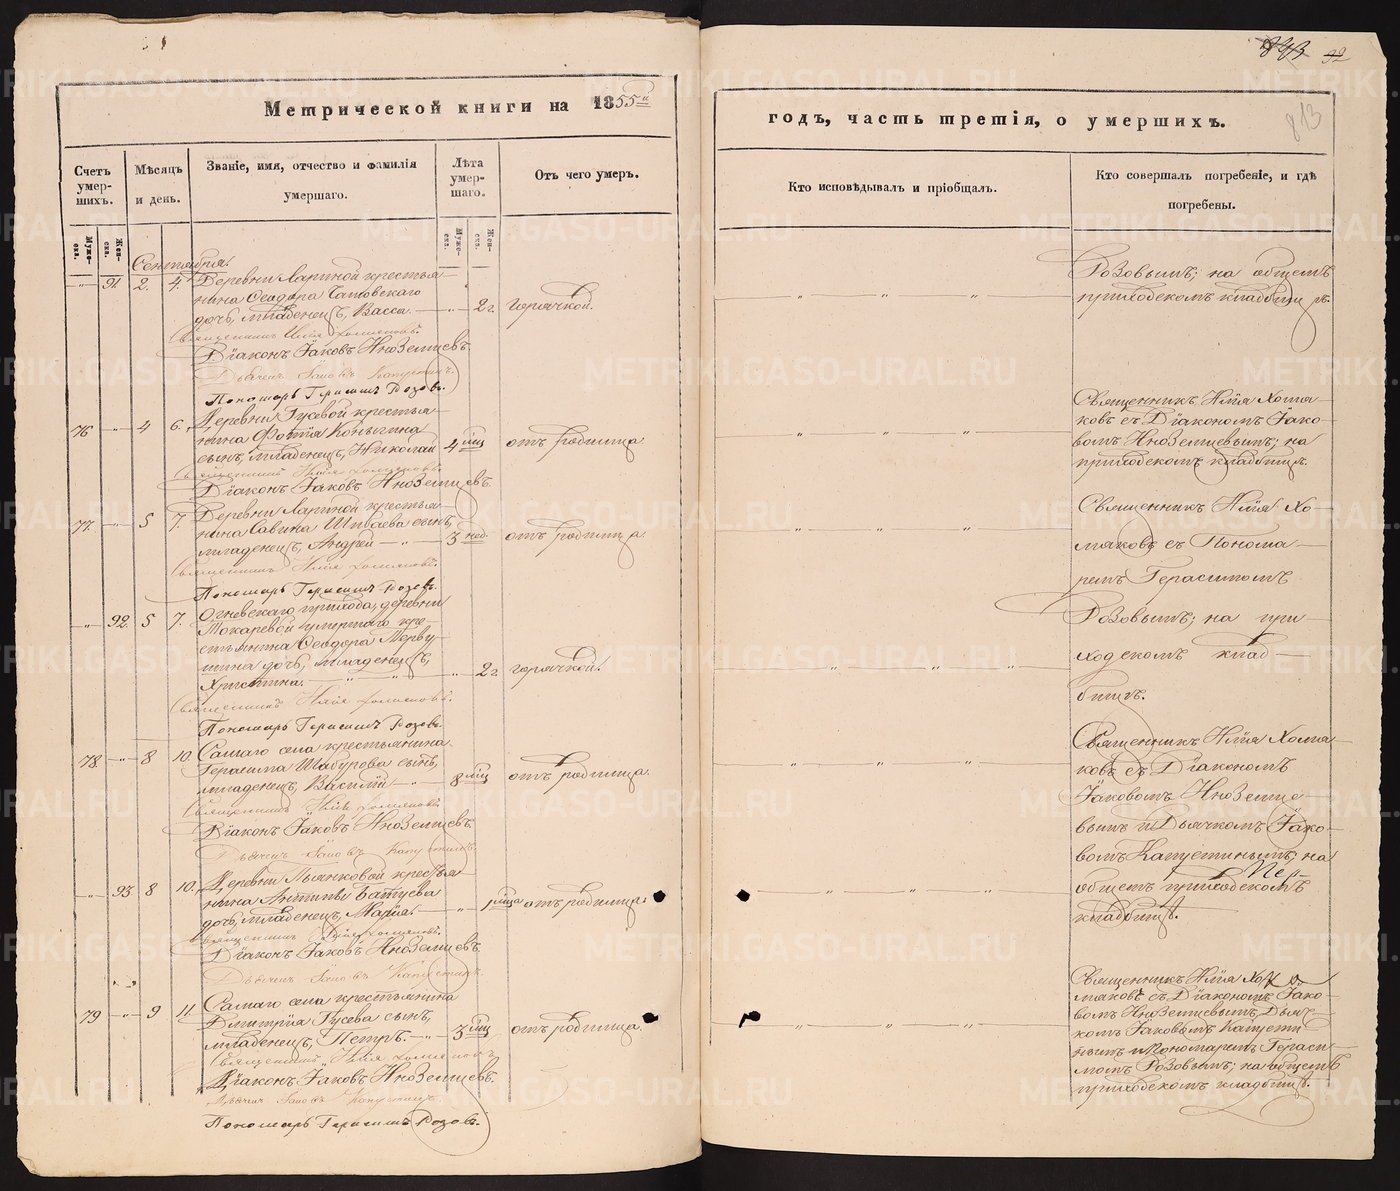 893 92
813
Метрической книги на 1855й
годъ, часть третія, о умершихъ.
Счетъ умер-шихъ.
Мѣсяцъ и день.
Званіе, имя, отчество и фамилія умершаго.
Лѣта умер-шаго.
Отъ чего умеръ.
Кто исповѣдывалъ и пріобщалъ.
Кто совершалъ погребеніе, и гдѣ погребены.
Муже-ска.
Жен-ска.
Муже-ска.
Жен-ска.
Сентября.
" 91 2. 4. Деревни Лариной крестья-
нина Ѳеодора
дочь, младенецъ, Васса. — " — 2 г. горячкой.
Священникъ Илія Хомяковъ.
Діаконъ Іаковъ Иноземцевъ.
Дьячекъ Іаковъ Капустинъ.
Пономарь Герасимъ Розовъ.
Розовымъ; на общемъ
приходскомъ кладбищѣ.
76 " 4 6. Деревни Гусевой крестья-
нина Фотія Коныгина
сынъ, младенецъ, Николай 4 мца отъ родимца.
Священникъ Илія Хомяковъ.
Діаконъ Іаковъ Иноземцевъ.
Священникъ Илія Хомя-
ковъ съ Діакономъ Іако-
вомъ Иноземцевымъ; на
приходскомъ кладбищѣ.
77. " 5 7. Деревни Лариной крестья-
нина Савина Шибаева сынъ,
младенецъ, Андрей — " — 3 нед. отъ родимца.
Священникъ Илія Хомяковъ.
Пономарь Герасимъ Розовъ.
Священникъ Илія Хо-
мяковъ съ Понома-
ремъ Герасимомъ
Розовымъ; на при-
ходскомъ клад-
бищѣ.
" 92. 5 7. Огневскаго прихода, деревни
Токаревой умершаго кре-
стьянина Ѳеодора
дочь, младенецъ,
Христина. — " — " — 2 г. горячкой.
Священникъ Илія Хомяковъ.
Пономарь Герасимъ Розовъ.
78. " 8 10. Самаго села крестьянина
Герасима Шабурова сынъ,
младенецъ, Василій — " 8 мцъ отъ родимца.
Священникъ Илія Хомяковъ.
Діаконъ Іаковъ Иноземцевъ.
Дьячекъ Іаковъ Капустинъ.
Священникъ Илія Хомя-
ковъ съ Діакономъ
Іаковомъ Иноземце-
вымъ и Дьячкомъ Іако-
вомъ Капустинымъ; на
общемъ приходскомъ
кладбищѣ.
" 93 8 10. Деревни Пьянковой крестья-
нина Антипы
дочь, младенецъ, Марія. — " 1 мца отъ родимца.
Священникъ Илія Хомяковъ.
Діаконъ Іаковъ Иноземцевъ.
Дьячекъ Іаковъ Капустинъ.
79 " 9 11. Самаго села крестьянина
Дмитрія Гусева сынъ,
младенецъ, Петръ. — " — 3 мца отъ родимца.
Священникъ Илія Хомяковъ,
Діаконъ Іаковъ Иноземцевъ.
Дьячекъ Іаковъ Капустинъ
Пономарь Герасимъ Розовъ.
Священникъ Илія Хо-
мяковъ съ Діакономъ Іако-
вомъ Иноземцевымъ, Дьяч-
комъ Іаковымъ Капусти-
нымъ и Пономаремъ Гераси-
момъ Розовымъ; на общемъ
приходскомъ кладбищѣ.
METRIKI.GASO-URAL.RU